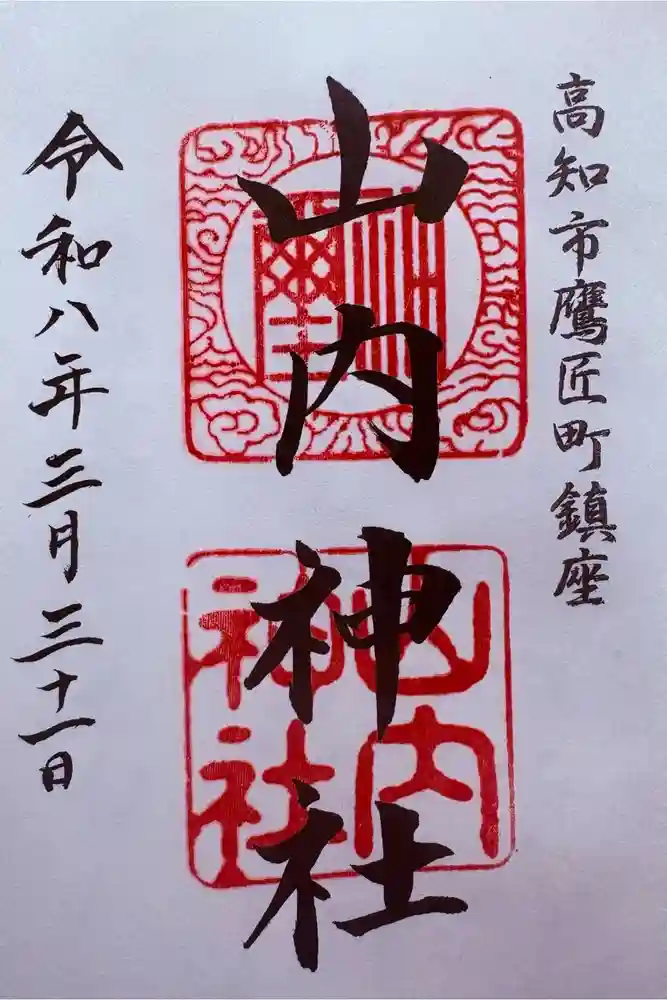 高知市鷹匠町鎮座
山内神社
山内
神社
令和八年三月三十一日